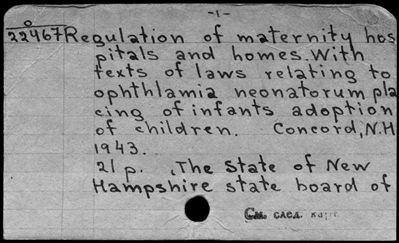 -1-
22467 Regulation of maternity hos
pitals and homes. With
texts of laws relating to
ophthlamia neonatorum pla
cing of infants adoption
of children. Concord, N.H
1943.
21 p. , The State of New
Hampshire state board of
См. след. карт.